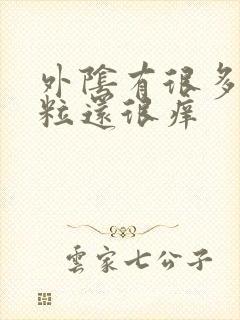 外陰有很多
粒還很痒
雲家七公子